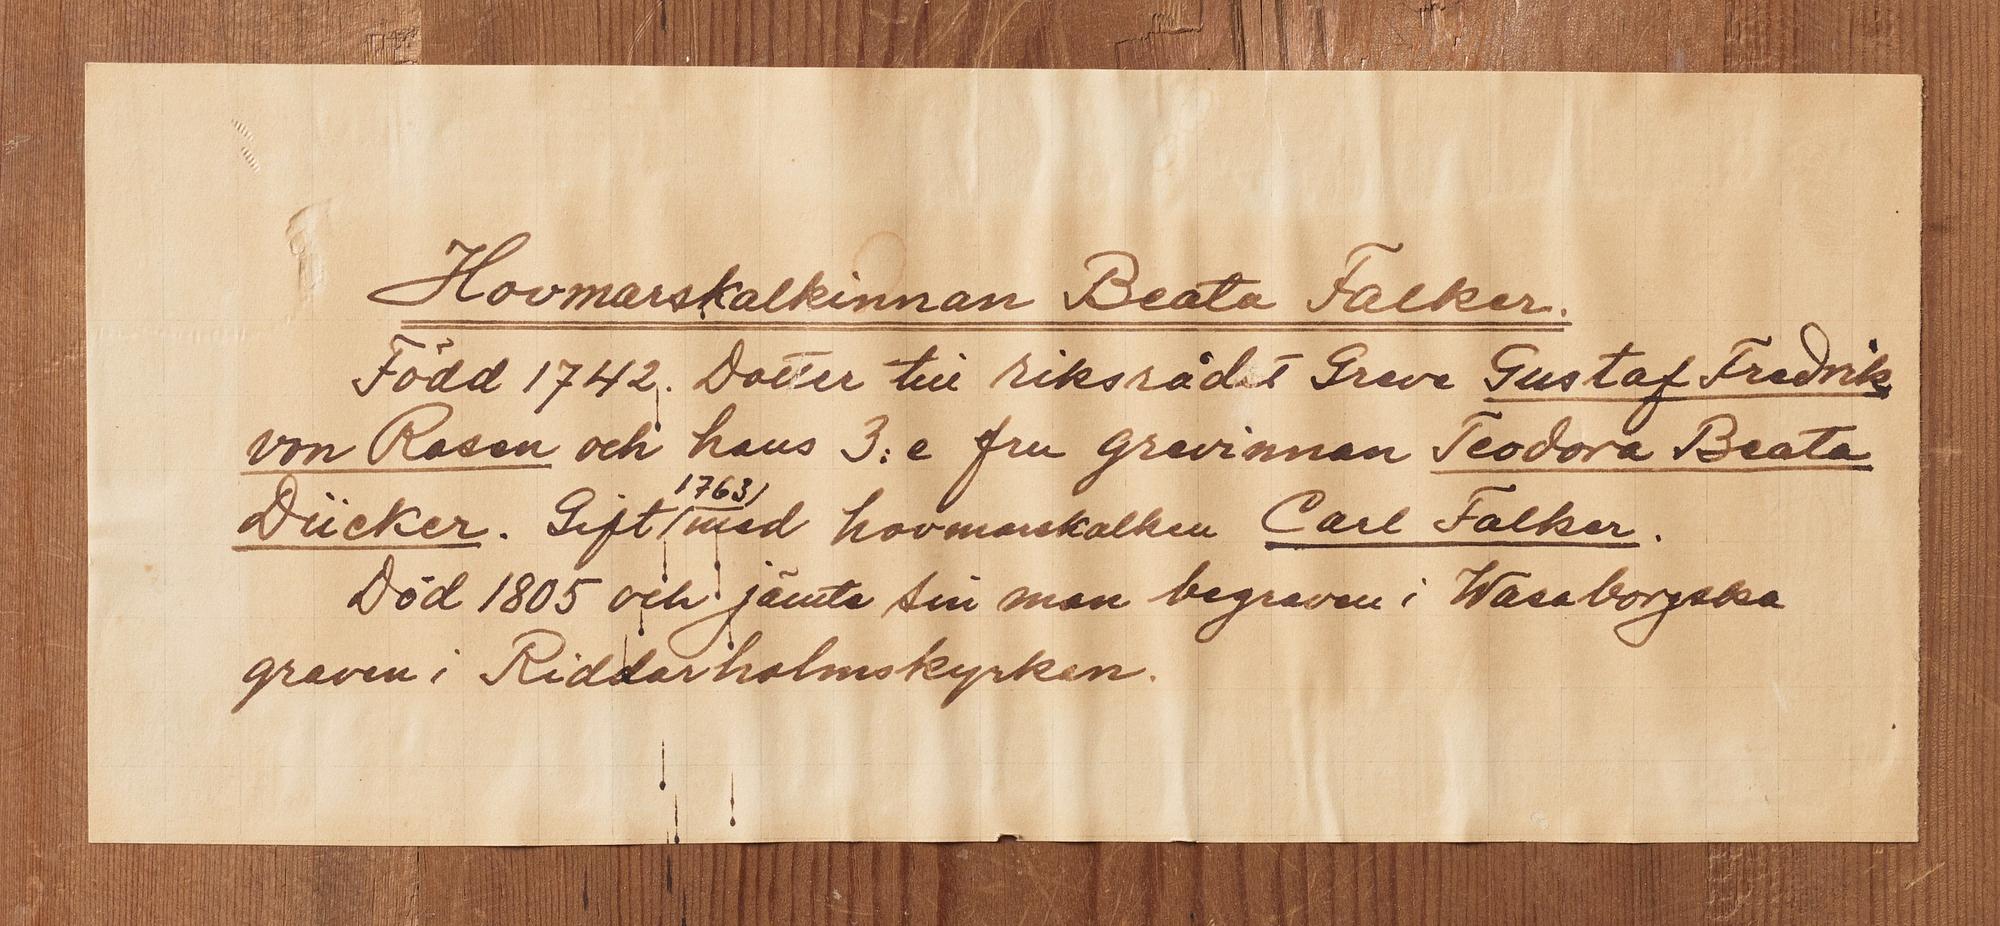 Hovmarskalkinnan Beata Falker.
Född 1742. Dotter till riksrådet Greve Gustaf Fredrik
von Rosen och hans 3:e fru grevinnan Teodora Beata
Dücker. Gift (1763) med hovmarskalken Carl Falker.
Död 1805 och jämte sin man begraven i Wasaborgska
graven i Riddarholmskyrkan.